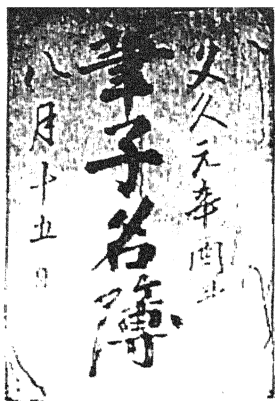 文久元辛酉年
筆子名簿
八月十五日